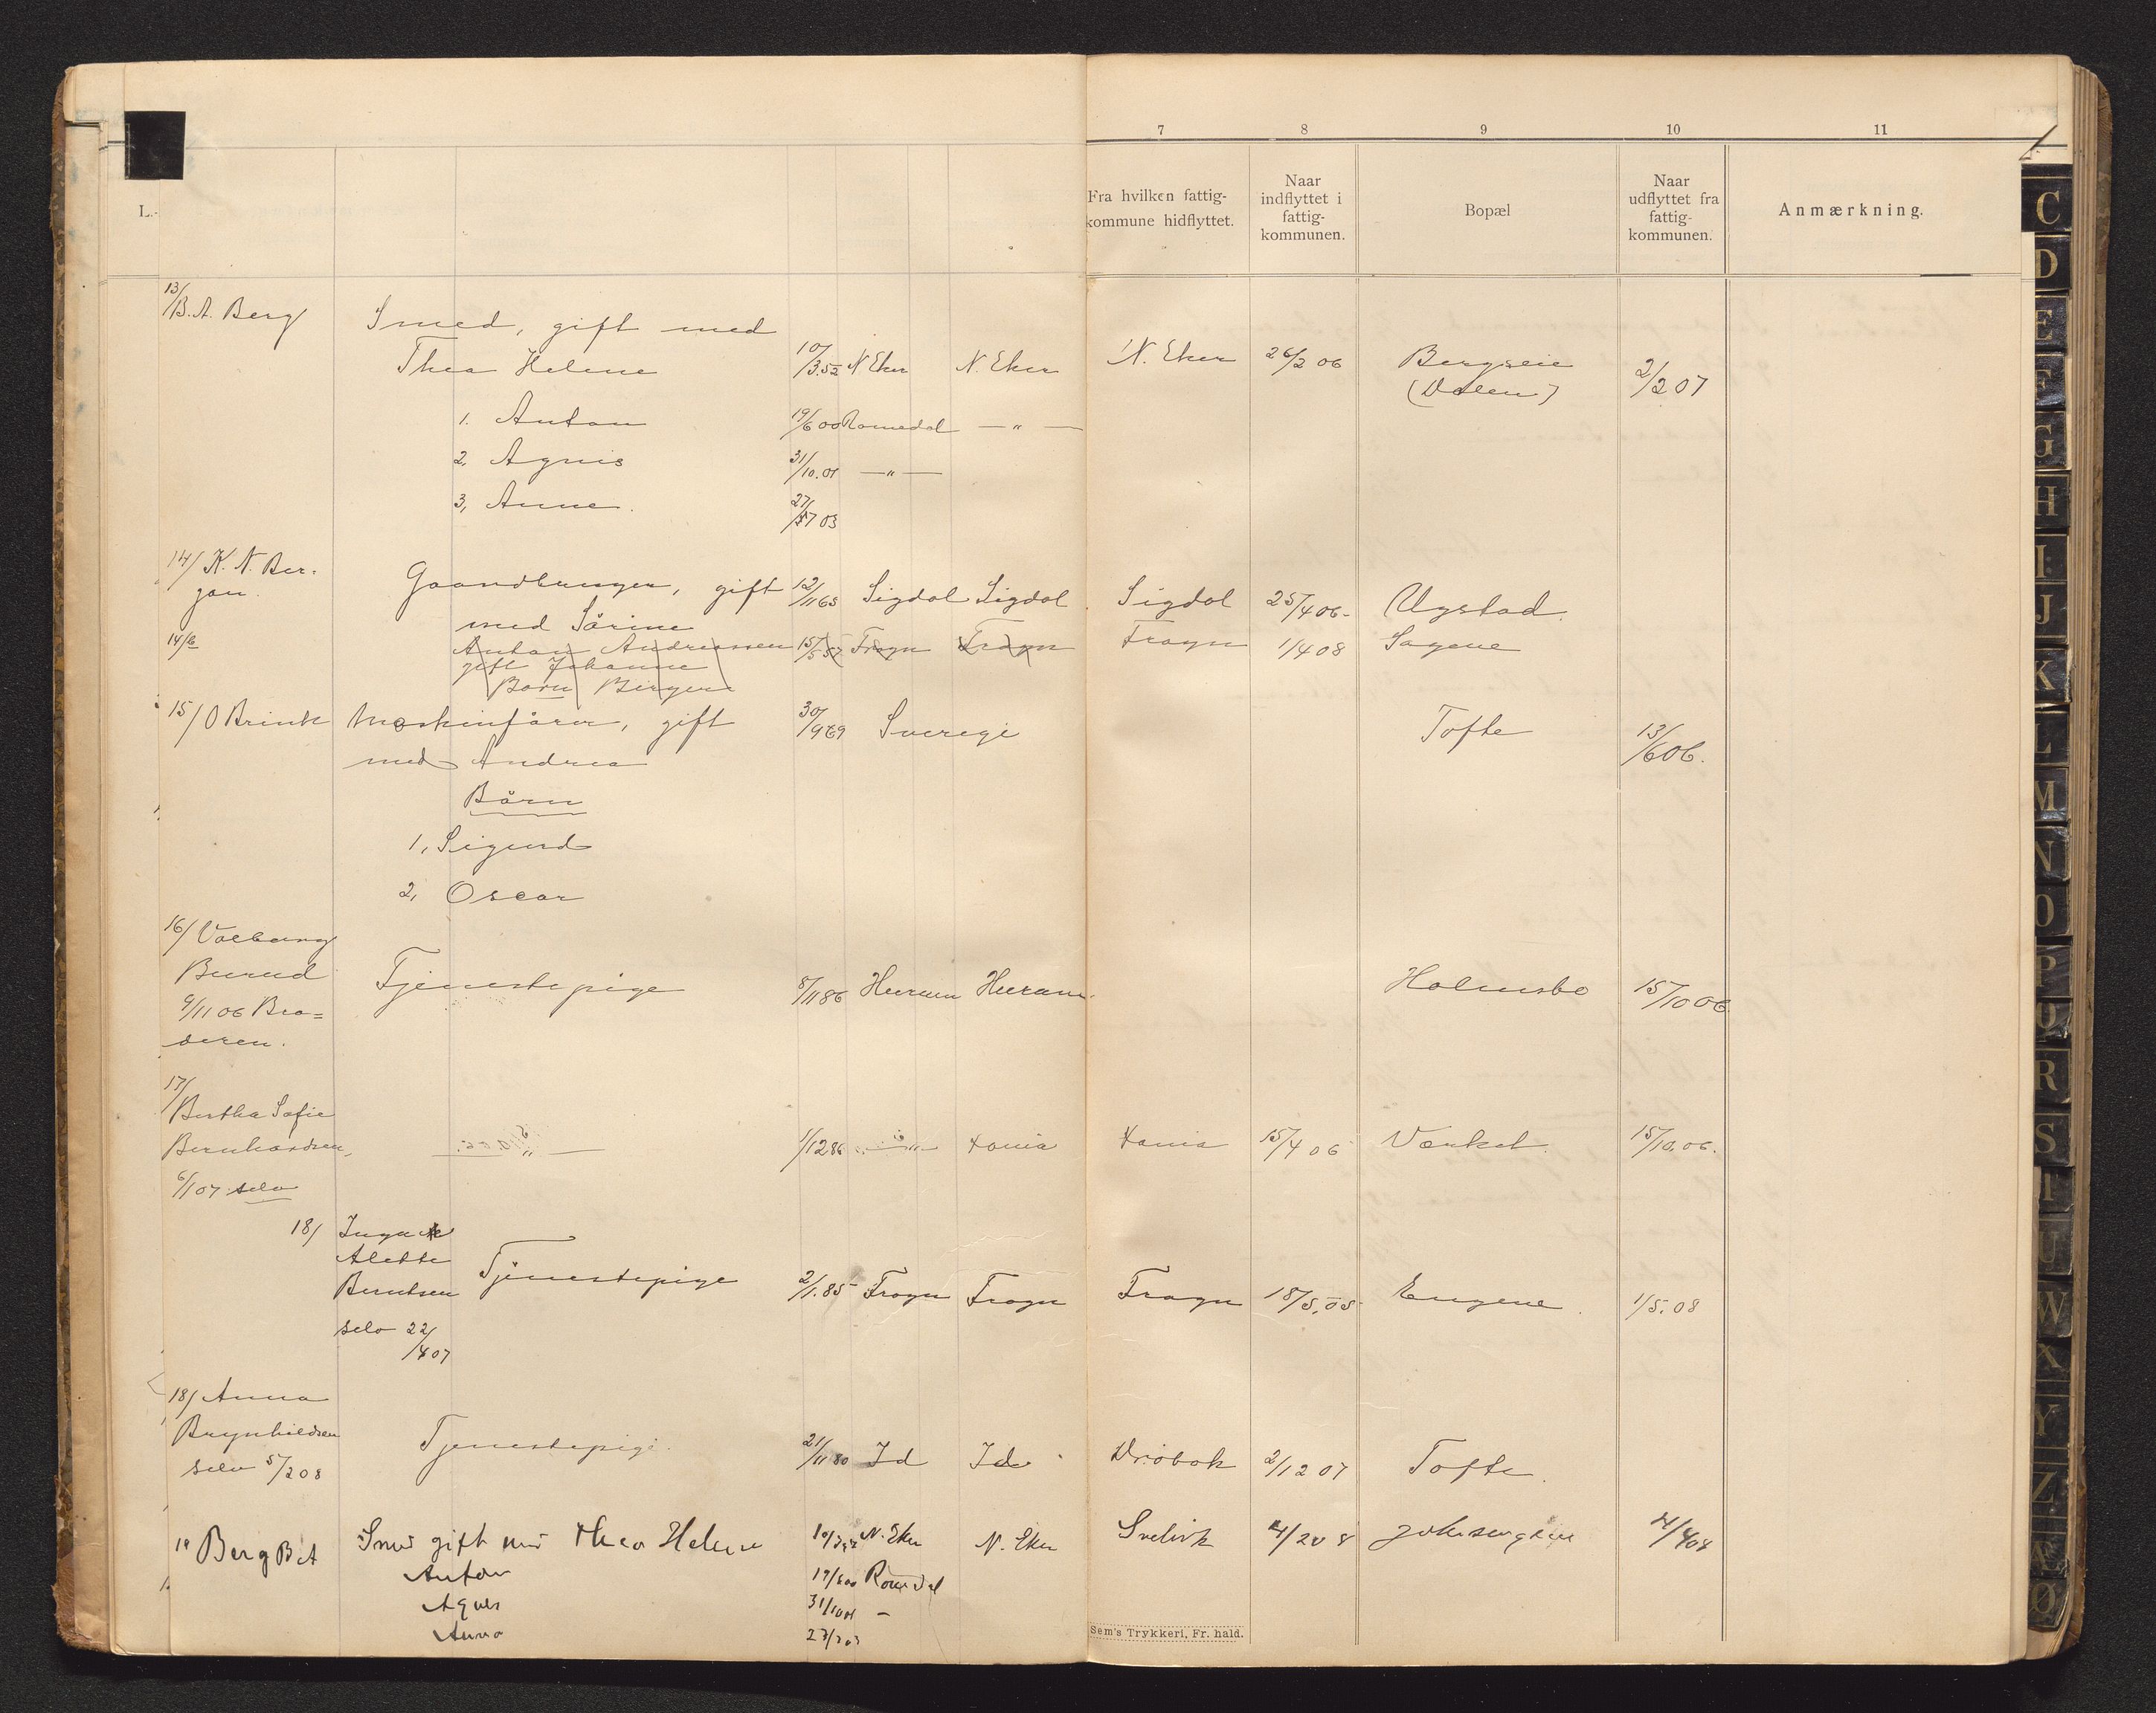 7 8 9 10 11
L.
Fra hvilken fattig-
kommune hidflyttet.
Naar
indflyttet i
fattig-
kommunen.
Bopæl
Naar
udflyttet fra
fattig-
kommunen.
Anmærkning.
13/
B. A. Berg Smed, gift med
Thea Helene 10/3.52 N Eker N. Eker N. Eker 26/2 06 Bergseie 2/2 07
(Dalen)
1. Anton 19/6 00 Romedal — " —
2, Agnis 31/10.01 — " —
3, Anne. 27/7 03
14/ K. N. Ber-
gan. Gaardbruger, gift 12/11 65 Sigdal Sigdal Sigdal 25/4 06 Ugstad.
med Sørine
14/b Anton Andreassen 15/5 57 Frogn Frogn Frogn 1/4 08 Sagene
gift Johanne
Barn Birger
15/ O Brink Maskinfører, gift 30/9 69 Sverige Tofte 13/6 06.
med Andrea
Børn
1, Sigurd
2, Oscar
16/ Valborg
Burud Tjenestepige 8/11 86 Hurum Hurum Holmsbo 15/10 06
9/11 06 Bro=
deren.
17/
Bertha Sofie
Bernhardsen, — " — 1/12 86 — " — 15/4 06 Værket. 15/10.06.
6/1 07 selv
18/ Inga
Alette
Berntsen Tjenestepige 2/1.85 Frogn Frogn Frogn 18/5.05 Engene. 1/5.08
selv 22/4 07
18/ Anna
Brynhildsen Tjenestepige. 21/11 80 Id Id Drøbak 2/12 07 Tofte.
selv 5/2 08
19 Berg B A Smed gift med Thea Helene 10/3 52 N. Eker N. Eker Svelvik 4/2 08 4/4 08
Anton 19/6 00 Romedal
Agnes 31/10 01 –
Anna 27/7 03
Sem's Trykkeri, Fr. hald.
C
D
E
F
G
H
I
J
K
L
M
N
O
P
Q
R
S
T
U
W
X
Y
Z
Æ
Ø